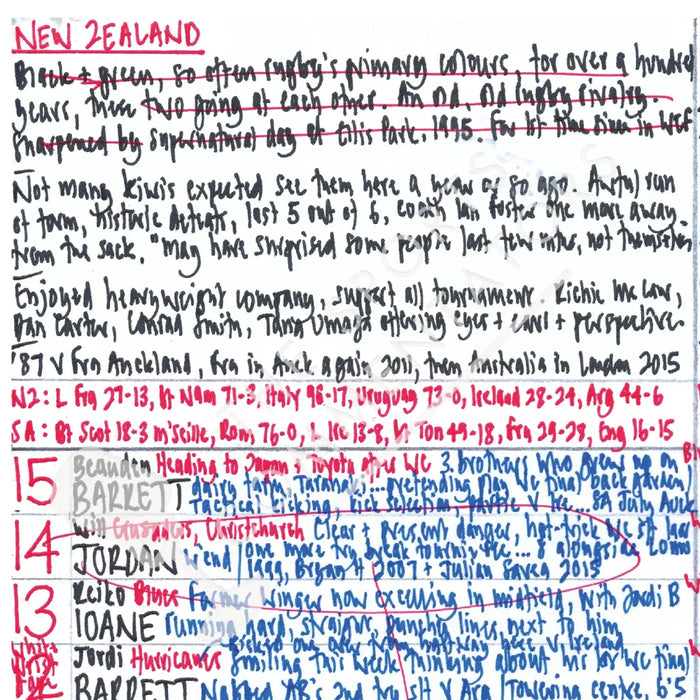 NEW ZEALAND
Black + green, so often rugby's primary colours, for over a hundred
years, these two going at each other. An old, old rugby rivalry.
Sharpened by supernatural day at Ellis Park, 1995. For 1st time since in WCF
Not many kiwis expected see them here a year or so ago. Awful run
of form, historic defeats, lost 5 out of 6, coach Ian Foster one more away
from the sack. "May have surprised some people last few mths, not themselves
Enjoyed heavyweight company, support all tournament. Richie McCaw,
Dan Carter, Conrad Smith, Tana Umaga offering eyes + ears + perspective.
'87 v Fra Auckland, Fra in Auck again 2011, then Australia in London 2015
NZ: L Fra 27-13, bt Nam 71-3, Italy 96-17, Uruguay 73-0, Ireland 28-24, Arg 44-6
SA: Bt Scot 18-3 M'seille, Rom 76-0, L Ire 13-8, bt Ton 49-18, Fra 29-28, Eng 16-15
15 Beauden Heading to Japan + Toyota after WC 3 brothers who grew up on
BARRETT dairy farm, Taranaki... pretending play WC final back garden
Tactical kicking, kick selection, v Ire... SA July Auck
14 Will Crusaders, Christchurch Clear + present danger, hat-trick WC s/f last
JORDAN w'end / one more try break tourn ... 8 alongside Lomu
1999, Bryan H 2007 + Julian Savea 2015
13 Reiko Blues Former winger now excelling in midfield, with Jordi B
IOANE running hard, straight, punchy lines, next to him
Jordi Hurricanes Smiling this week thinking about his 1st WC final
BARRETT Nabbed AB's 2nd try s/f v Arg / Towering centre 6'5